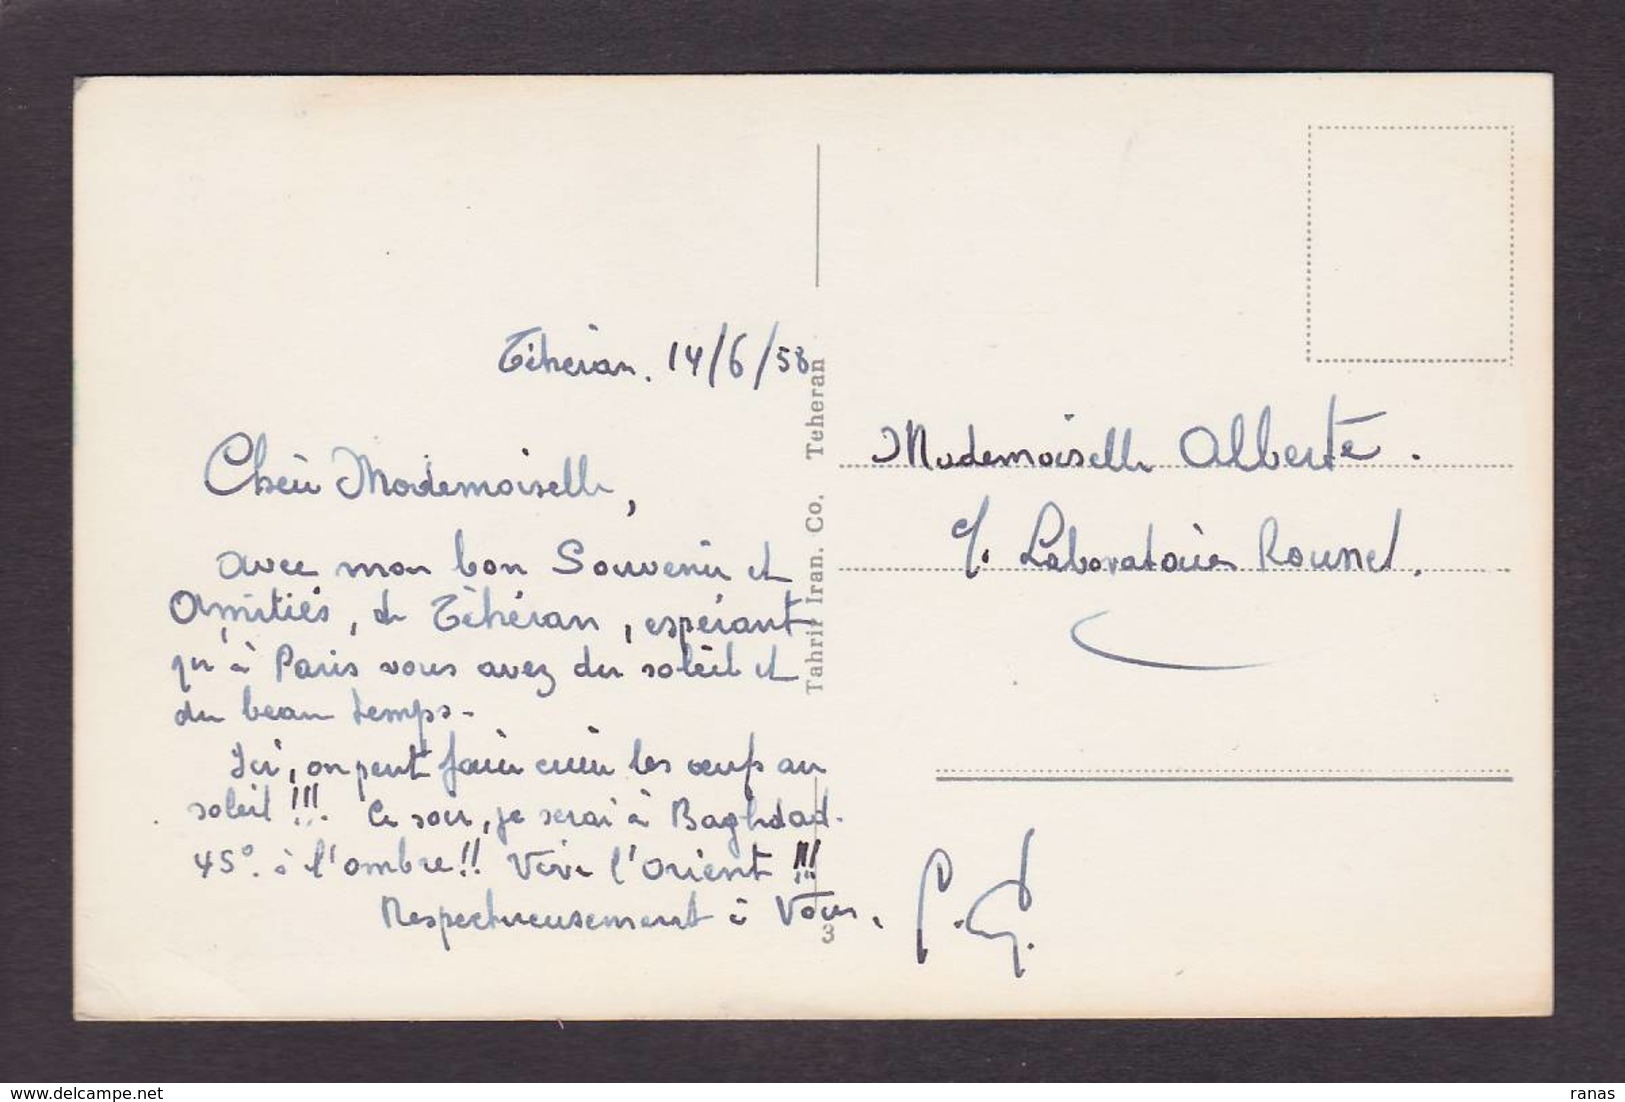 Téhéran. 14/6/58
Chère Mademoiselle,
avec mon bon Souvenir et
Amitiés, de Téhéran, espérant
qu'à Paris vous avez du soleil et
du beau temps-
Ici, on peut faire cuire les œufs au
soleil !!! Ce soir, je serai à Baghdad.
45°. à l'ombre!! Vive l'Orient !!!
Respectueusement à Vous.
Tahrir Iran. Co. Teheran
3
Mademoiselle Alberte.
c/. Laboratoires Roussel.
ranas